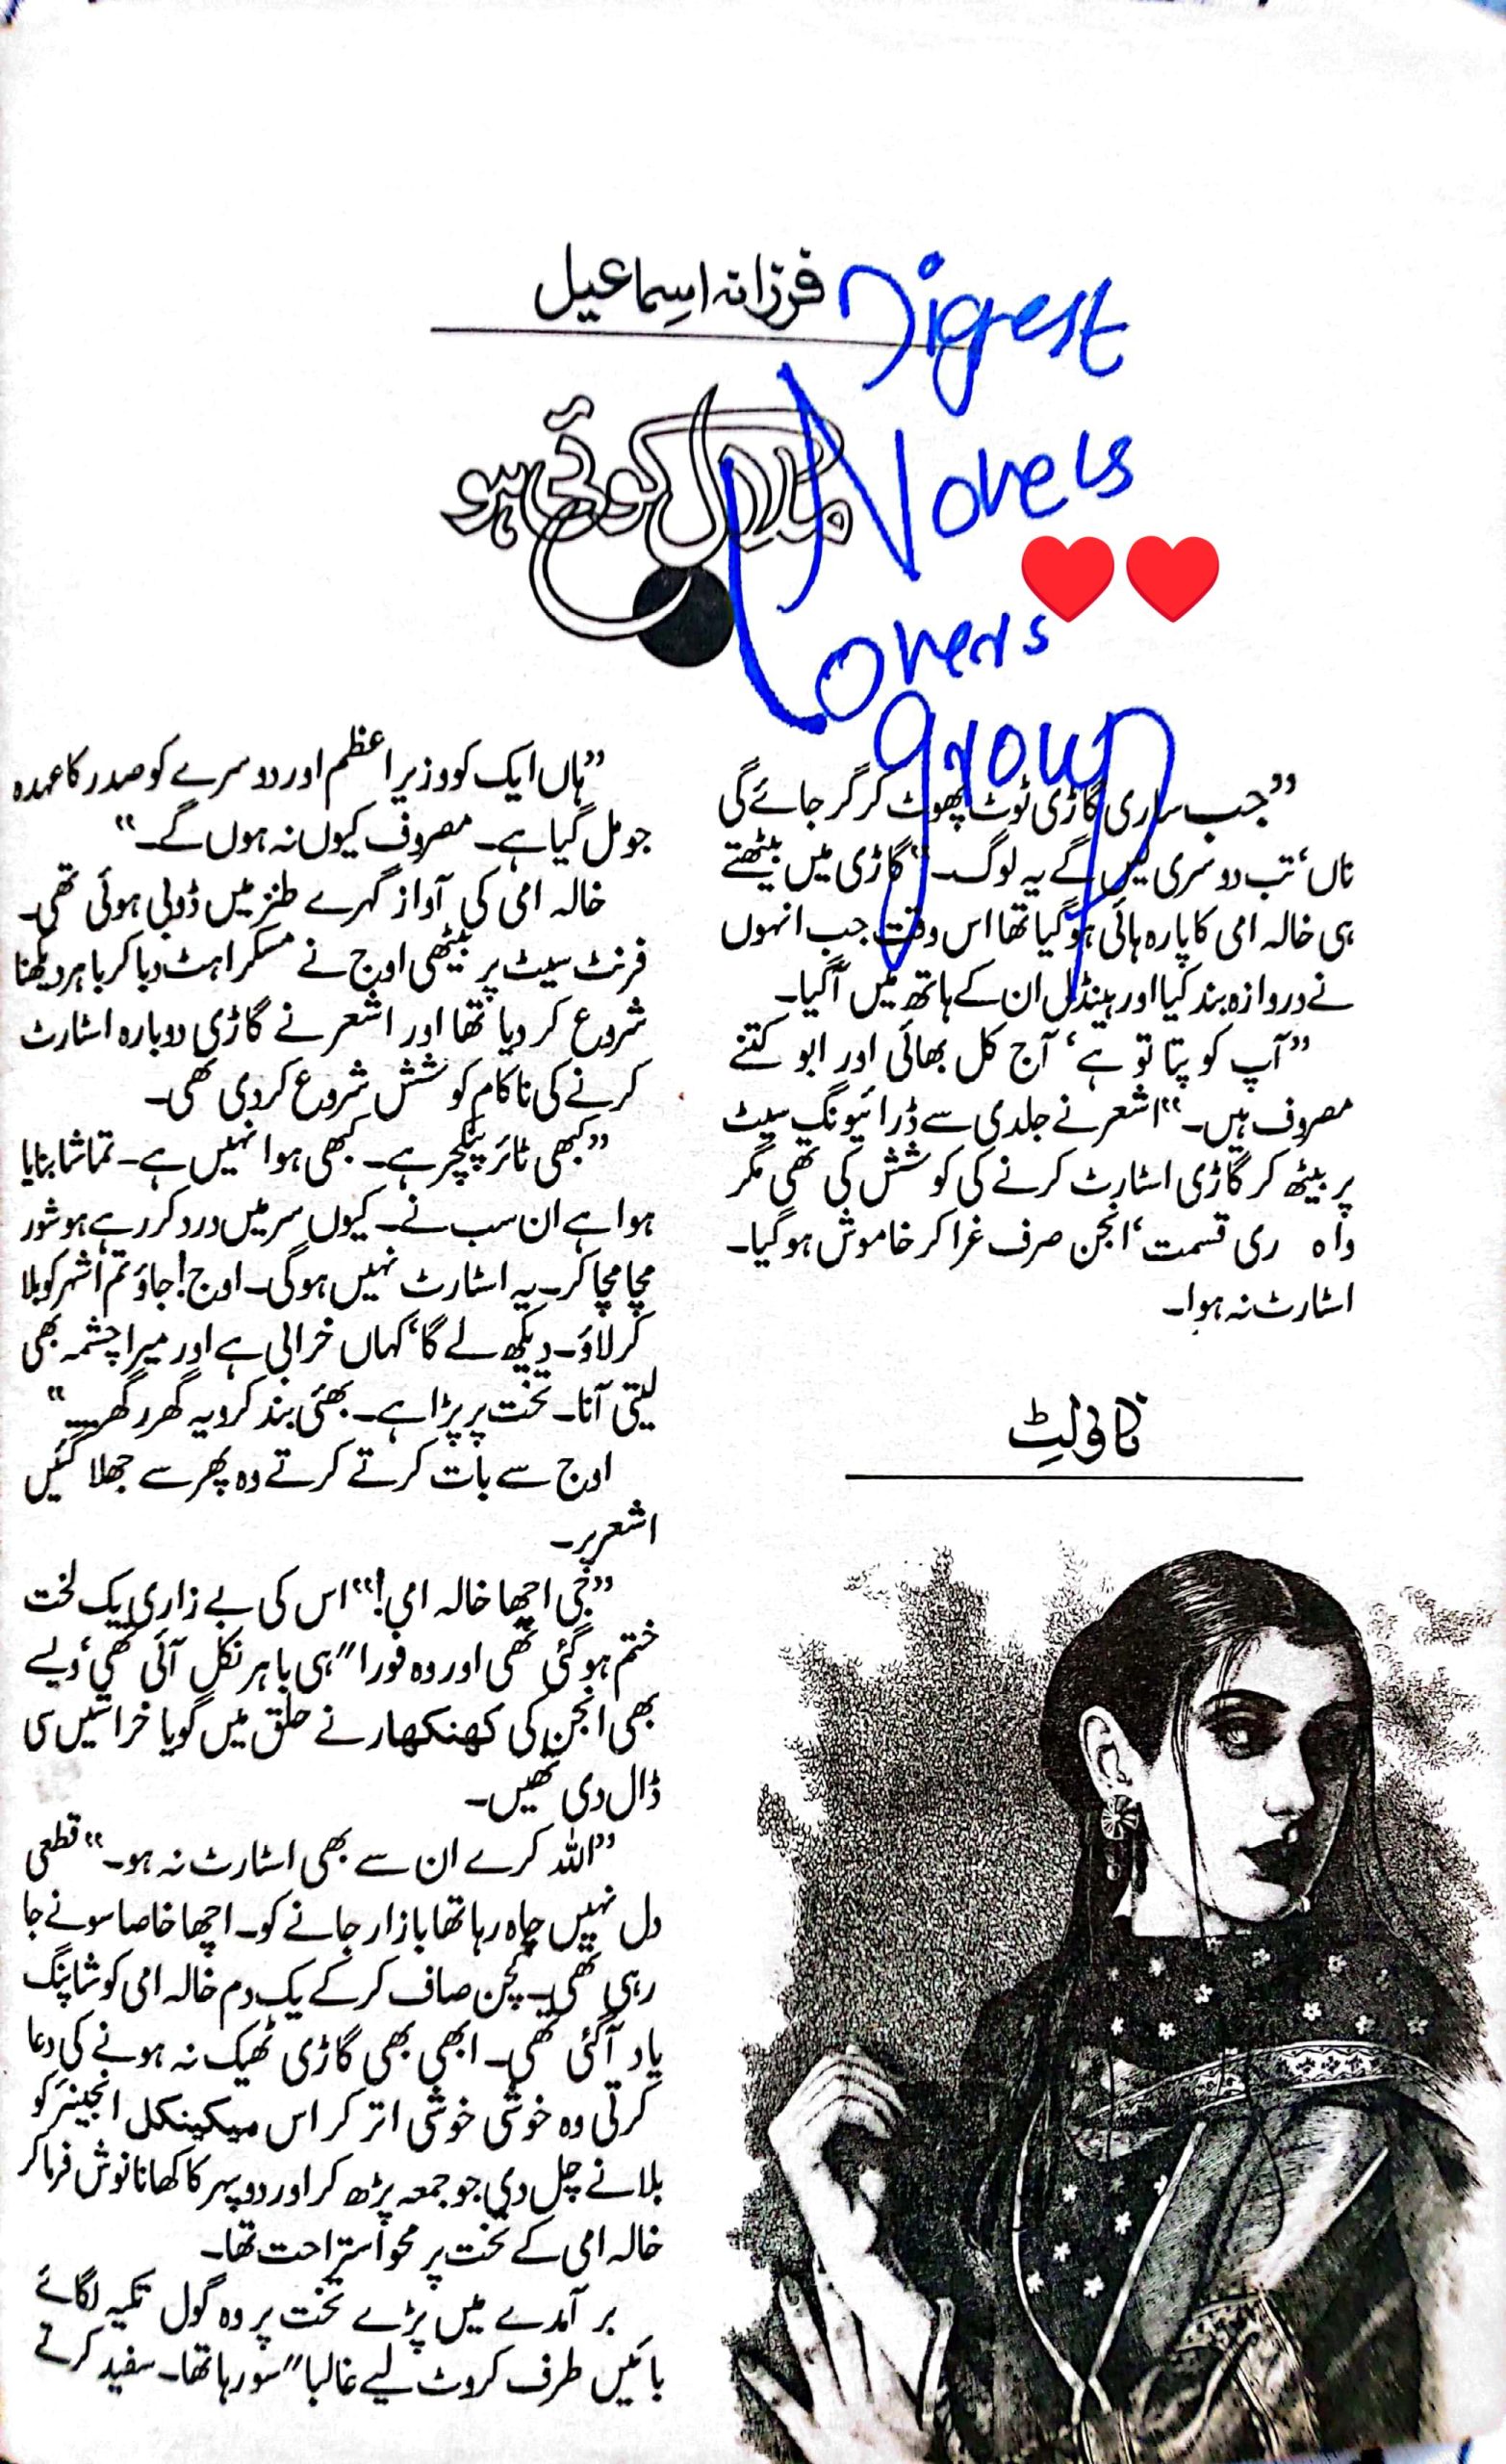 فرزانہ اسماعیل
ملال کوئی ہو
Digest
Novels
Lovers
group
”جب ساری گاڑی ٹوٹ پھوٹ کر گر جائے گی
ناں‘ تب دوسری لیں گے یہ لوگ۔“ گاڑی میں بیٹھتے
ہی خالہ امی کا پارہ ہائی ہو گیا تھا اس وقت جب انہوں
نے دروازہ بند کیا اور ہینڈل ان کے ہاتھ میں آگیا۔
”آپ کو پتا تو ہے‘ آج کل بھائی اور ابو کتنے
مصروف ہیں۔“ اشعر نے جلدی سے ڈرائیونگ سیٹ
پر بیٹھ کر گاڑی اسٹارٹ کرنے کی کوشش کی تھی مگر
واہ ری قسمت‘ انجن صرف غرا کر خاموش ہوگیا۔
اسٹارٹ نہ ہوا۔
ناولٹ
”ہاں ایک کو وزیر اعظم اور دوسرے کو صدر کا عہدہ
جو مل گیا ہے۔ مصروف کیوں نہ ہوں گے۔“
خالہ امی کی آواز گہرے طنز میں ڈوبی ہوئی تھی۔
فرنٹ سیٹ پر بیٹھی اوج نے مسکراہٹ دبا کر باہر دیکھنا
شروع کر دیا تھا اور اشعر نے گاڑی دوبارہ اسٹارٹ
کرنے کی ناکام کوشش شروع کردی تھی۔
”کبھی ٹائر پنکچر ہے۔ کبھی ہوا نہیں ہے۔ تماشا بنایا
ہوا ہے ان سب نے۔ کیوں سر میں درد کر رہے ہو شور
مچا مچا کر۔ یہ اسٹارٹ نہیں ہوگی۔ اوج! جاؤ تم اشہر کو بلا
کر لاؤ۔ دیکھ لے گا‘ کہاں خرابی ہے اور میرا چشمہ بھی
لیتی آنا۔ تخت پر پڑا ہے۔ بھئی بند کرو یہ گھرر گھرر....“
اوج سے بات کرتے کرتے وہ پھر سے جھلا گئیں
اشعر پر۔
”جی اچھا خالہ امی!“ اس کی بے زاری یک لخت
ختم ہوگئی تھی اور وہ فورا" ہی باہر نکل آئی تھی‘ ویسے
بھی انجن کی کھنکھار نے حلق میں گویا خراشیں سی
ڈال دی تھیں۔
”اللہ کرے ان سے بھی اسٹارٹ نہ ہو۔“ قطعی
دل نہیں چاہ رہا تھا بازار جانے کو۔ اچھا خاصا سونے جا
رہی تھی۔ کچن صاف کر کے یک دم خالہ امی کو شاپنگ
یاد آگئی تھی۔ ابھی بھی گاڑی ٹھیک نہ ہونے کی دعا
کرتی وہ خوشی خوشی اتر کر اس میکینکل انجینئر کو
بلانے چل دی جو جمعہ پڑھ کر اور دوپہر کا کھانا نوش فرما کر
خالہ امی کے تخت پر محو استراحت تھا۔
برآمدے میں پڑے تخت پر وہ گول تکیہ لگائے
بائیں طرف کروٹ لیے غالبا" سو رہا تھا۔ سفید کرتے